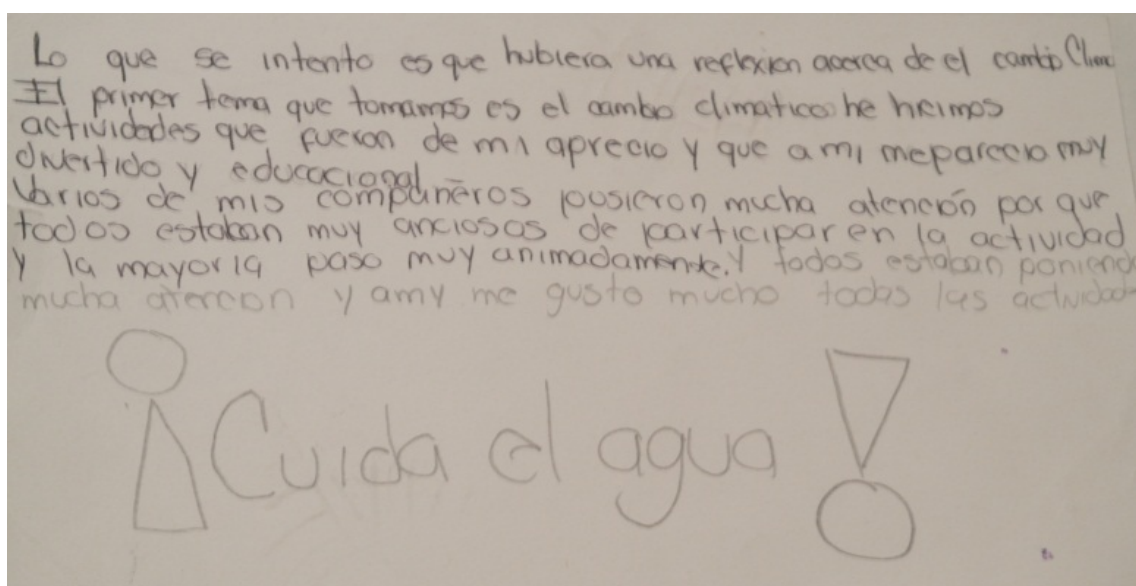 Lo que se intento es que hubiera una reflexion acerca de el cambio Clima
El primer tema que tomamos es el cambio climatico he hicimos
actividades que fueron de mi aprecio y que a mi meparecio muy
divertido y educacional
Varios de mis compañeros pusieron mucha atención por que
todos estaban muy anciosos de participar en la actividad
y la mayoria paso muy animadamente. Y todos estaban poniendo
mucha atencion y amy me gusto mucho todas las actividad
¡Cuida el agua!